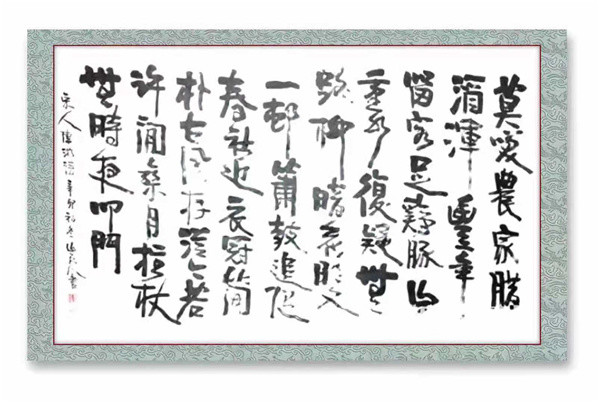 莫笑農家腊
酒渾豐年
留客足雞豚山
重水復疑無
路柳暗花明又
一邨簫鼓追隨
春社近衣冠簡
朴古風存從今若
許閒乘月拄杖
無時夜叩門
宋人陸游詩辛卯初冬書